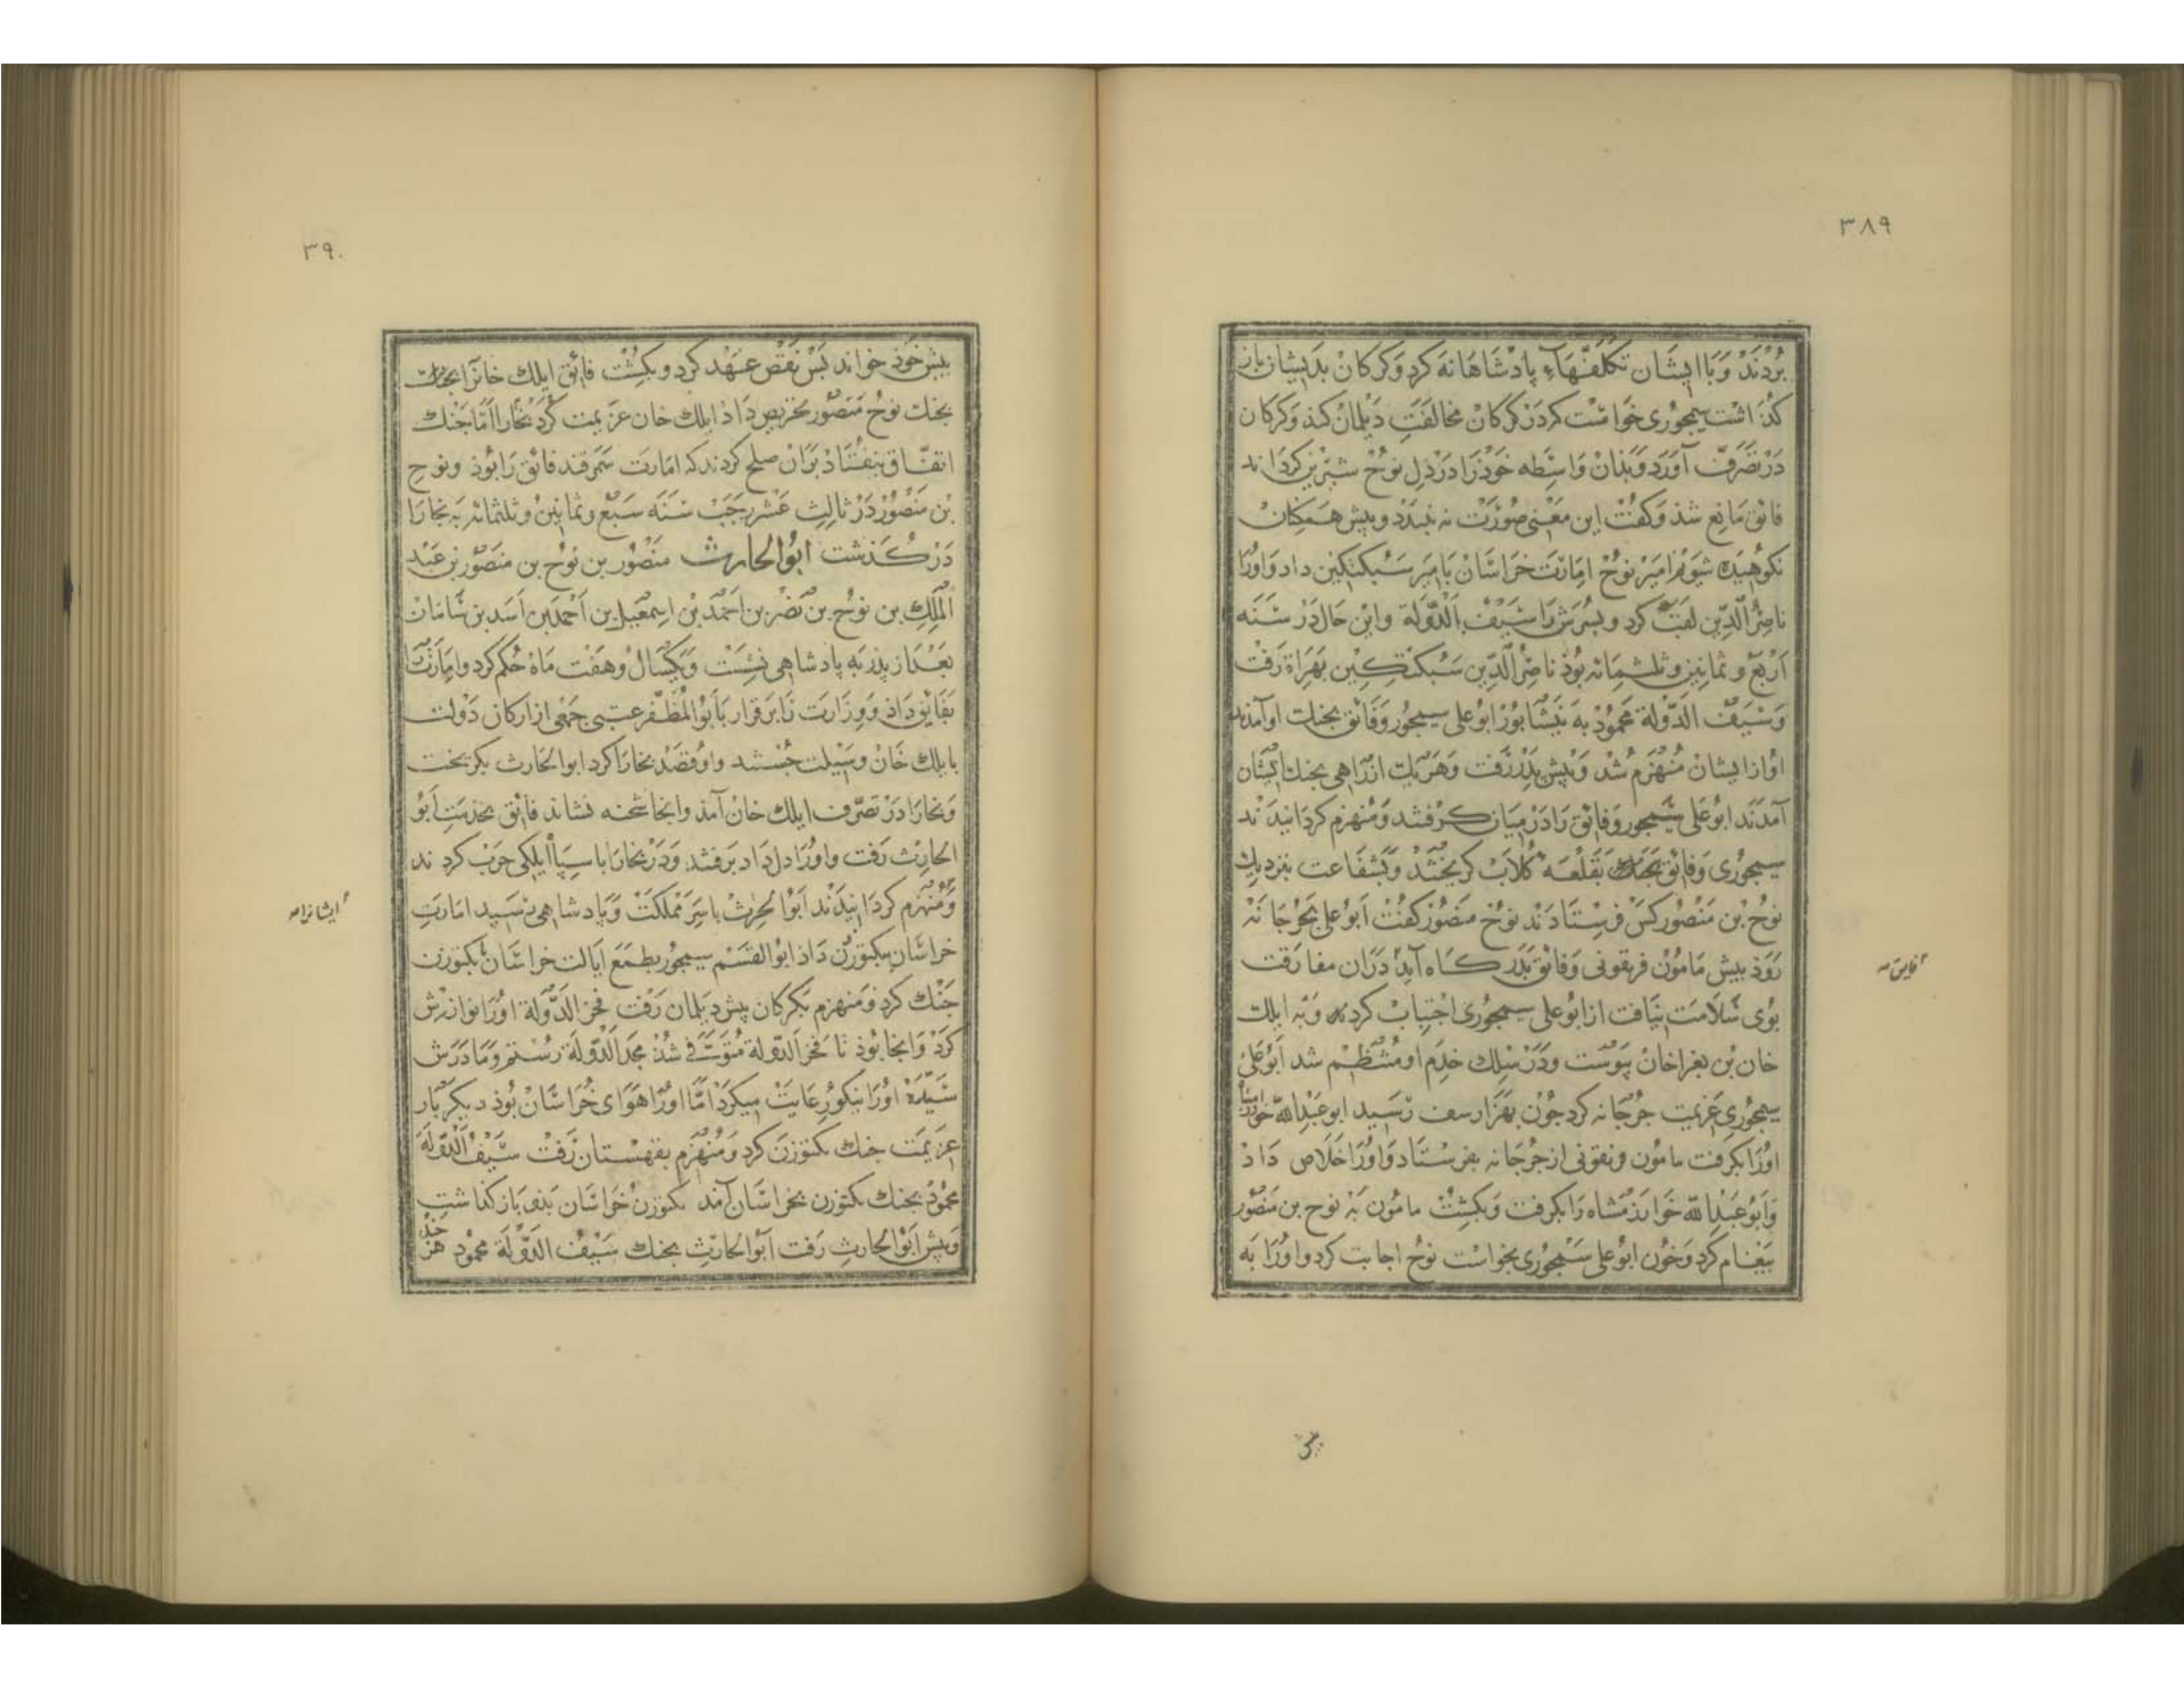 ۳۸۹
بُردَند وَبَا ایشان تکلّفهَاءِ پادشاهانه کرد و کرکان بدیشان باز
کذاشت سیمجوری خواست کردر کرکان مخالفت دیلمان کند و کرکان
در تصرف آورد و بذان واسطه خوذ را در دل نوح شیرین کرداند
فائق مانع شذ و کفت این معنی صورت نه بندد و پیش همکنان
نکوهیده شویم امیر نوح امارت خراسان بامیر سبکتکین داد و اورا
ناصر الدین لقب کرد و بسرش را سیف الدولة و این حال در سنه
اربع و ثمانین و ثلثمائه بوذ ناصر الدین سبکتکین بهراة رفت
و سیف الدولة محمود به نیشابور ابوعلی سیمجور و فائق بجنک او آمدند
او از ایشان منهزم شد و پیش پدر رفت و هریک از راهی بجنک ایشان
آمدند ابوعلی سیمجور و فائق را در میان کرفتند و منهزم کردانیدند
سیمجوری و فائق بقلعه کلاب کریختند و بشفاعت بنزدیک
نوح بن منصور کس فرستادند نوح منصور کفت ابوعلی بجرجانه
روذ پیش مامون فریقونی و فائق بدرکاه آید دران مفارقت
فایق
بوی سلامت نیافت از ابوعلی سیمجوری اجتیاب کرد و به ایلک
خان بن بغراخان پیوست و در سلک خدم او منتظم شد ابوعلی
سیمجوری عزیمت جرجانه کرد جون بهزارسف رسید ابوعبدالله خوارزمشاه
اورا بکرفت مامون فریقونی از جرجانه بفرستاد و اورا خلاص داد
و ابوعبدالله خوارزمشاه را بکرفت و بکشت مامون به نوح بن منصور
پیغام کرد و خون ابوعلی سیمجوری بخواست نوح اجابت کرد و اورا به
۳۹۰
پیش خوذ خواند پس نقض عهد کرد و بکشت فائق ایلک خانرا
بجنک نوح منصور تحریص داذ ایلک خان عزیمت کرد بخارا اما جنک
اتفاق نیفتاد بران صلح کردند که امارت سمرقند فائق را بوذ و نوح
بن منصور در ثالث عشر رجب سنه سبع و ثمانین و ثلثمائه به بخارا
در کذشت ابوالحارث منصور بن نوح بن منصور بن عبد
الملک بن نوح بن نصر بن احمد بن اسمعیل بن احمد بن اسد بن سامان
بعد از پدر به پادشاهی نشست و یکسال و هفت ماه حکم کرد و امارت را
بفائق داذ و وزارت را برقرار بابوالمظفر عتبی جمعی از ارکان دولت
بایلک خان وسیلت جستند و او قصد بخارا کرد ابوالحارث بکریخت
و بخارا در تصرف ایلک خان آمذ و آنجا شحنه نشاند فائق بخدمت ابو
الحارث رفت و اورا دل داد برفتند و در بخارا با سپاه ایلکی حرب کردند
و منهزم کردانیدند ابوالحرث باسر مملکت و پادشاهی رسید امارت
ایشانرا
خراسان ببکتوزن داذ ابوالقسم سیمجور بطمع ایالت خراسان با بکتوزن
جنک کرد و منهزم بکرکان پیش دیلمان رفت فخر الدولة اورا نوازش
کرد و آنجا بوذ تا فخر الدولة متوفی شذ مجد الدولة رستم و مادرش
سیده اورا نیکو رعایت میکرد اما اورا هوای خراسان بوذ دیکر بار
عزیمت جنک بکتوزن کرد و منهزم بقهستان رفت سیف الدولة
محمود بجنک بکتوزن بخراسان آمد بکتوزن خراسان بذو باز کذاشت
و پیش ابوالحارث رفت ابوالحارث بجنک سیف الدولة محمود